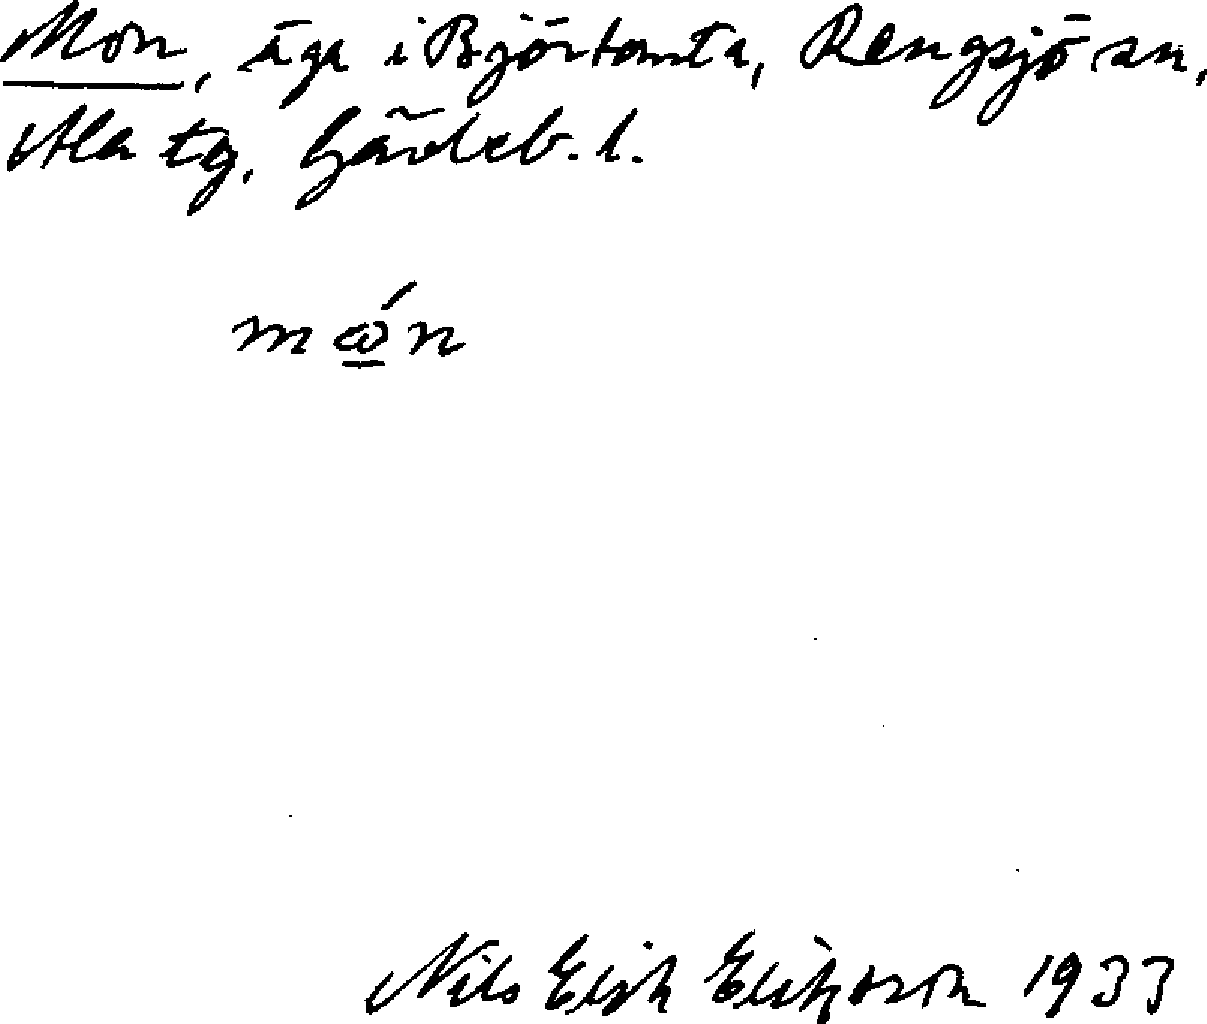 Mon, äga i Björtomta, Rengsjö sn,
Ala tg, Gävleb. l.
mώ̲n
Nils Erik Eriksson 1933